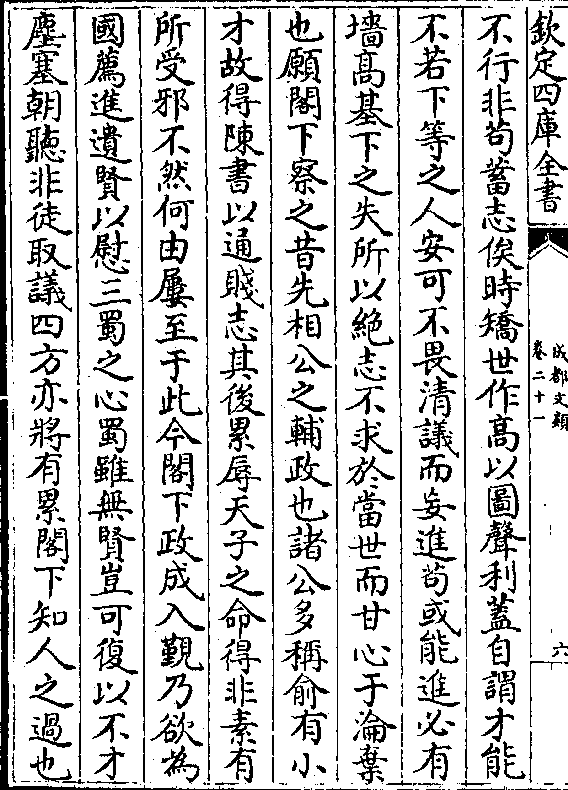 欽定四庫全書
成都文類
卷二十一
六
不行非苟蓄志俟時矯世作高以圖聲利蓋自謂才能
不若下等之人安可不畏清議而妄進苟或能進必有
墻高基下之失所以絶志不求於當世而甘心于淪棄
也願閣下察之昔先相公之輔政也諸公多稱俞有小
才故得陳書以通賤志其後累辱天子之命得非素有
所受邪不然何由屢至于此今閣下政成入覲乃欲為
國薦進遺賢以慰三蜀之心蜀雖無賢豈可復以不才
塵塞朝聽非徒取議四方亦將有累閣下知人之過也